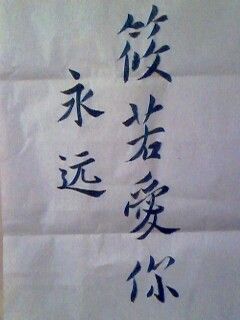 筱若愛你
永远